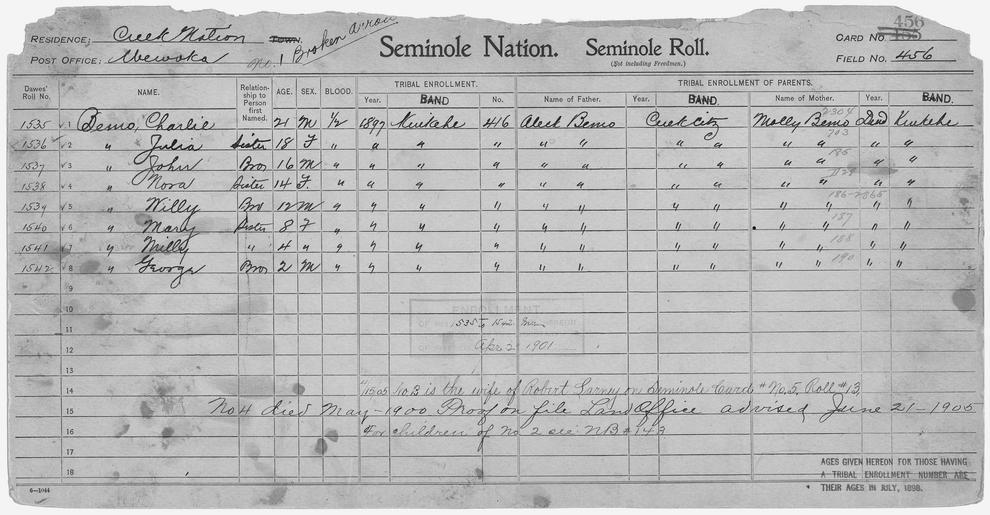 456
RESIDENCE: Creek Nation TOWN. Broken Arrow CARD NO.
Seminole Nation. Seminole Roll.
POST OFFICE: Wewoka No. 1 (Not including Freedmen.) FIELD NO. 456
Dawes' Roll No. NAME. Relationship to Person first Named. AGE. SEX. BLOOD. TRIBAL ENROLLMENT. TRIBAL ENROLLMENT OF PARENTS.
Year. BAND No. Name of Father. Year. BAND Name of Mother. Year. BAND.
2304
1535 √ 1 Bemo, Charlie 21 M 1/2 1897 416 Aleck Bemo Creek City Molly Bemo Dead
703
1536 √ 2 " Julia Sister 18 F " " " " " " " " " " " " "
1537 √ 3 " John Bro 16 M " " " " " " " " " " " " "
1538 √ 4 " Nora Sister 14 F. " " " " " " " " " " " " "
186-2865
1539 √ 5 " Willy Bro 12 M " " " " " " " " " " " " "
187
1540 √ 6 " Mary Sister 8 F " " " " " " " " " " " " "
188
1541 √ 7 " Milly " 4 " " " " " " " " " " " " " "
190
1542 √ 8 " George Bro 2 M " " " " " " " " " " " " "
9
10
ENROLLMENT
11 OF HEREON
1535 to 1542
12 Apr 2 1901
13
14 No 2 is the wife of Robert on Seminole Card # No. 5, Roll # 13,
15 No 4 died May - 1900 Proof on file Land Office advised June 21 - 1905
16 For children of No 2 see NB # 143
17
18
AGES GIVEN HEREON FOR THOSE HAVING
A TRIBAL ENROLLMENT NUMBER ARE
THEIR AGES IN JULY, 1898.
6-1044